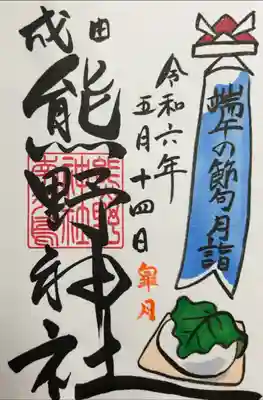 端午の節句月詣
令和六年
五月十四日
皐月
成田
熊野神社